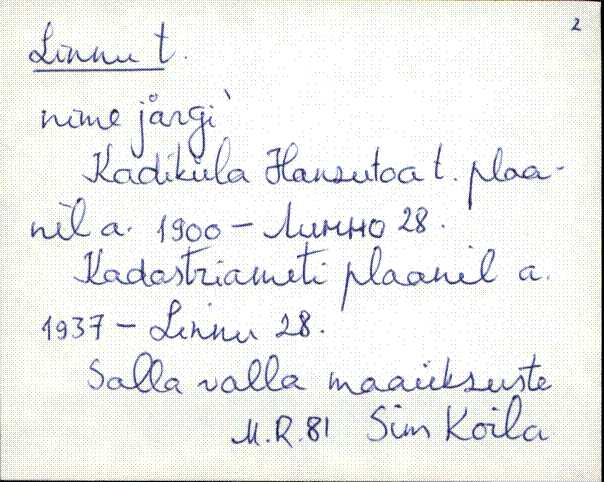 2
Linnu t.
nime järgi
Kadiküla Hansutoa t. plaa-
nil a. 1900 - Линно 28.
Kadastriameti plaanil a.
1937 - Linnu 28.
Salla valla maaüksuste
M.R. 81 Sim Koila